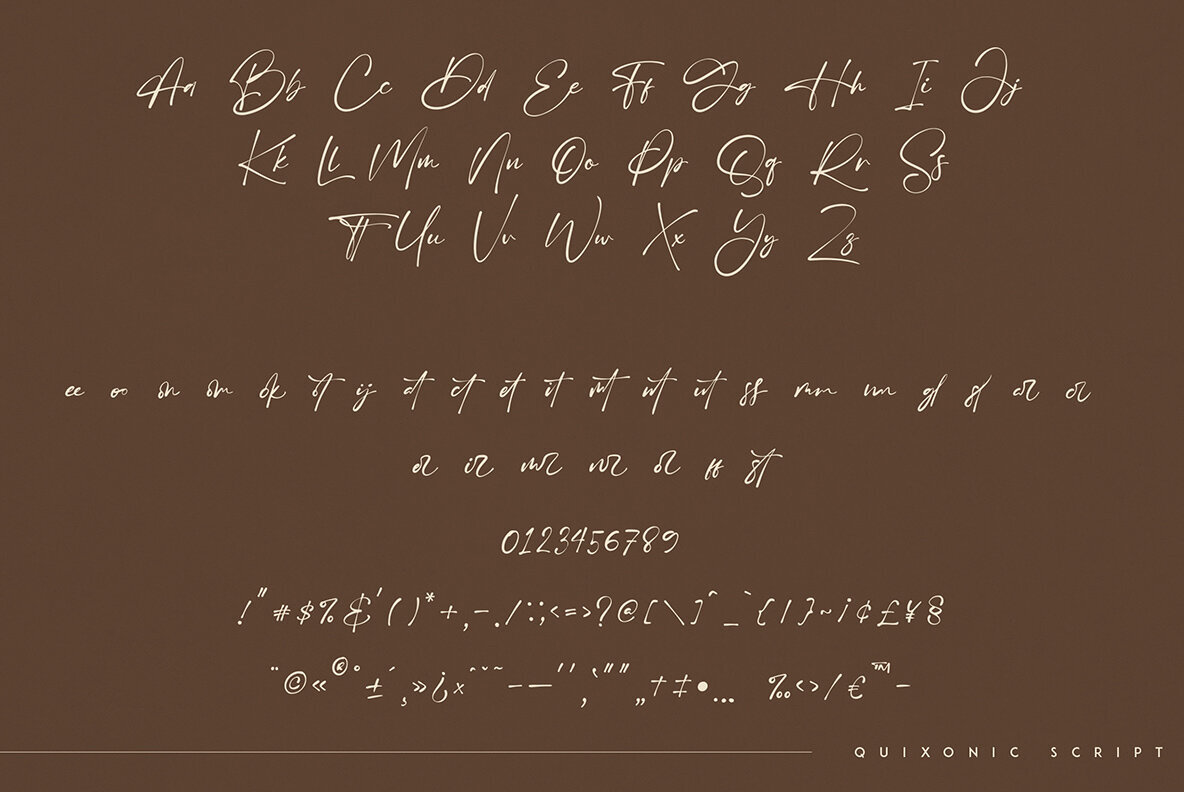 Aa Bb Cc Dd Ee Ff Gg Hh Ii Jj
Kk Ll Mm Nn Oo Pp Qq Rr Ss
Tt Uu Vv Ww Xx Yy Zz
ee oo on om ok ot ij at ct et it mt nt ut ss mm nn gf sf ar cr
er ir mr nr or ff st
0123456789
!"#$%&'()*+,-./:;<=>?@[\]^_`{|}~¡¢£¥§
¨©«®°±´¸»¿×ˆ˘˜–—‘’‚“”„†‡•… ‰‹›/€™−
QUIXONIC SCRIPT